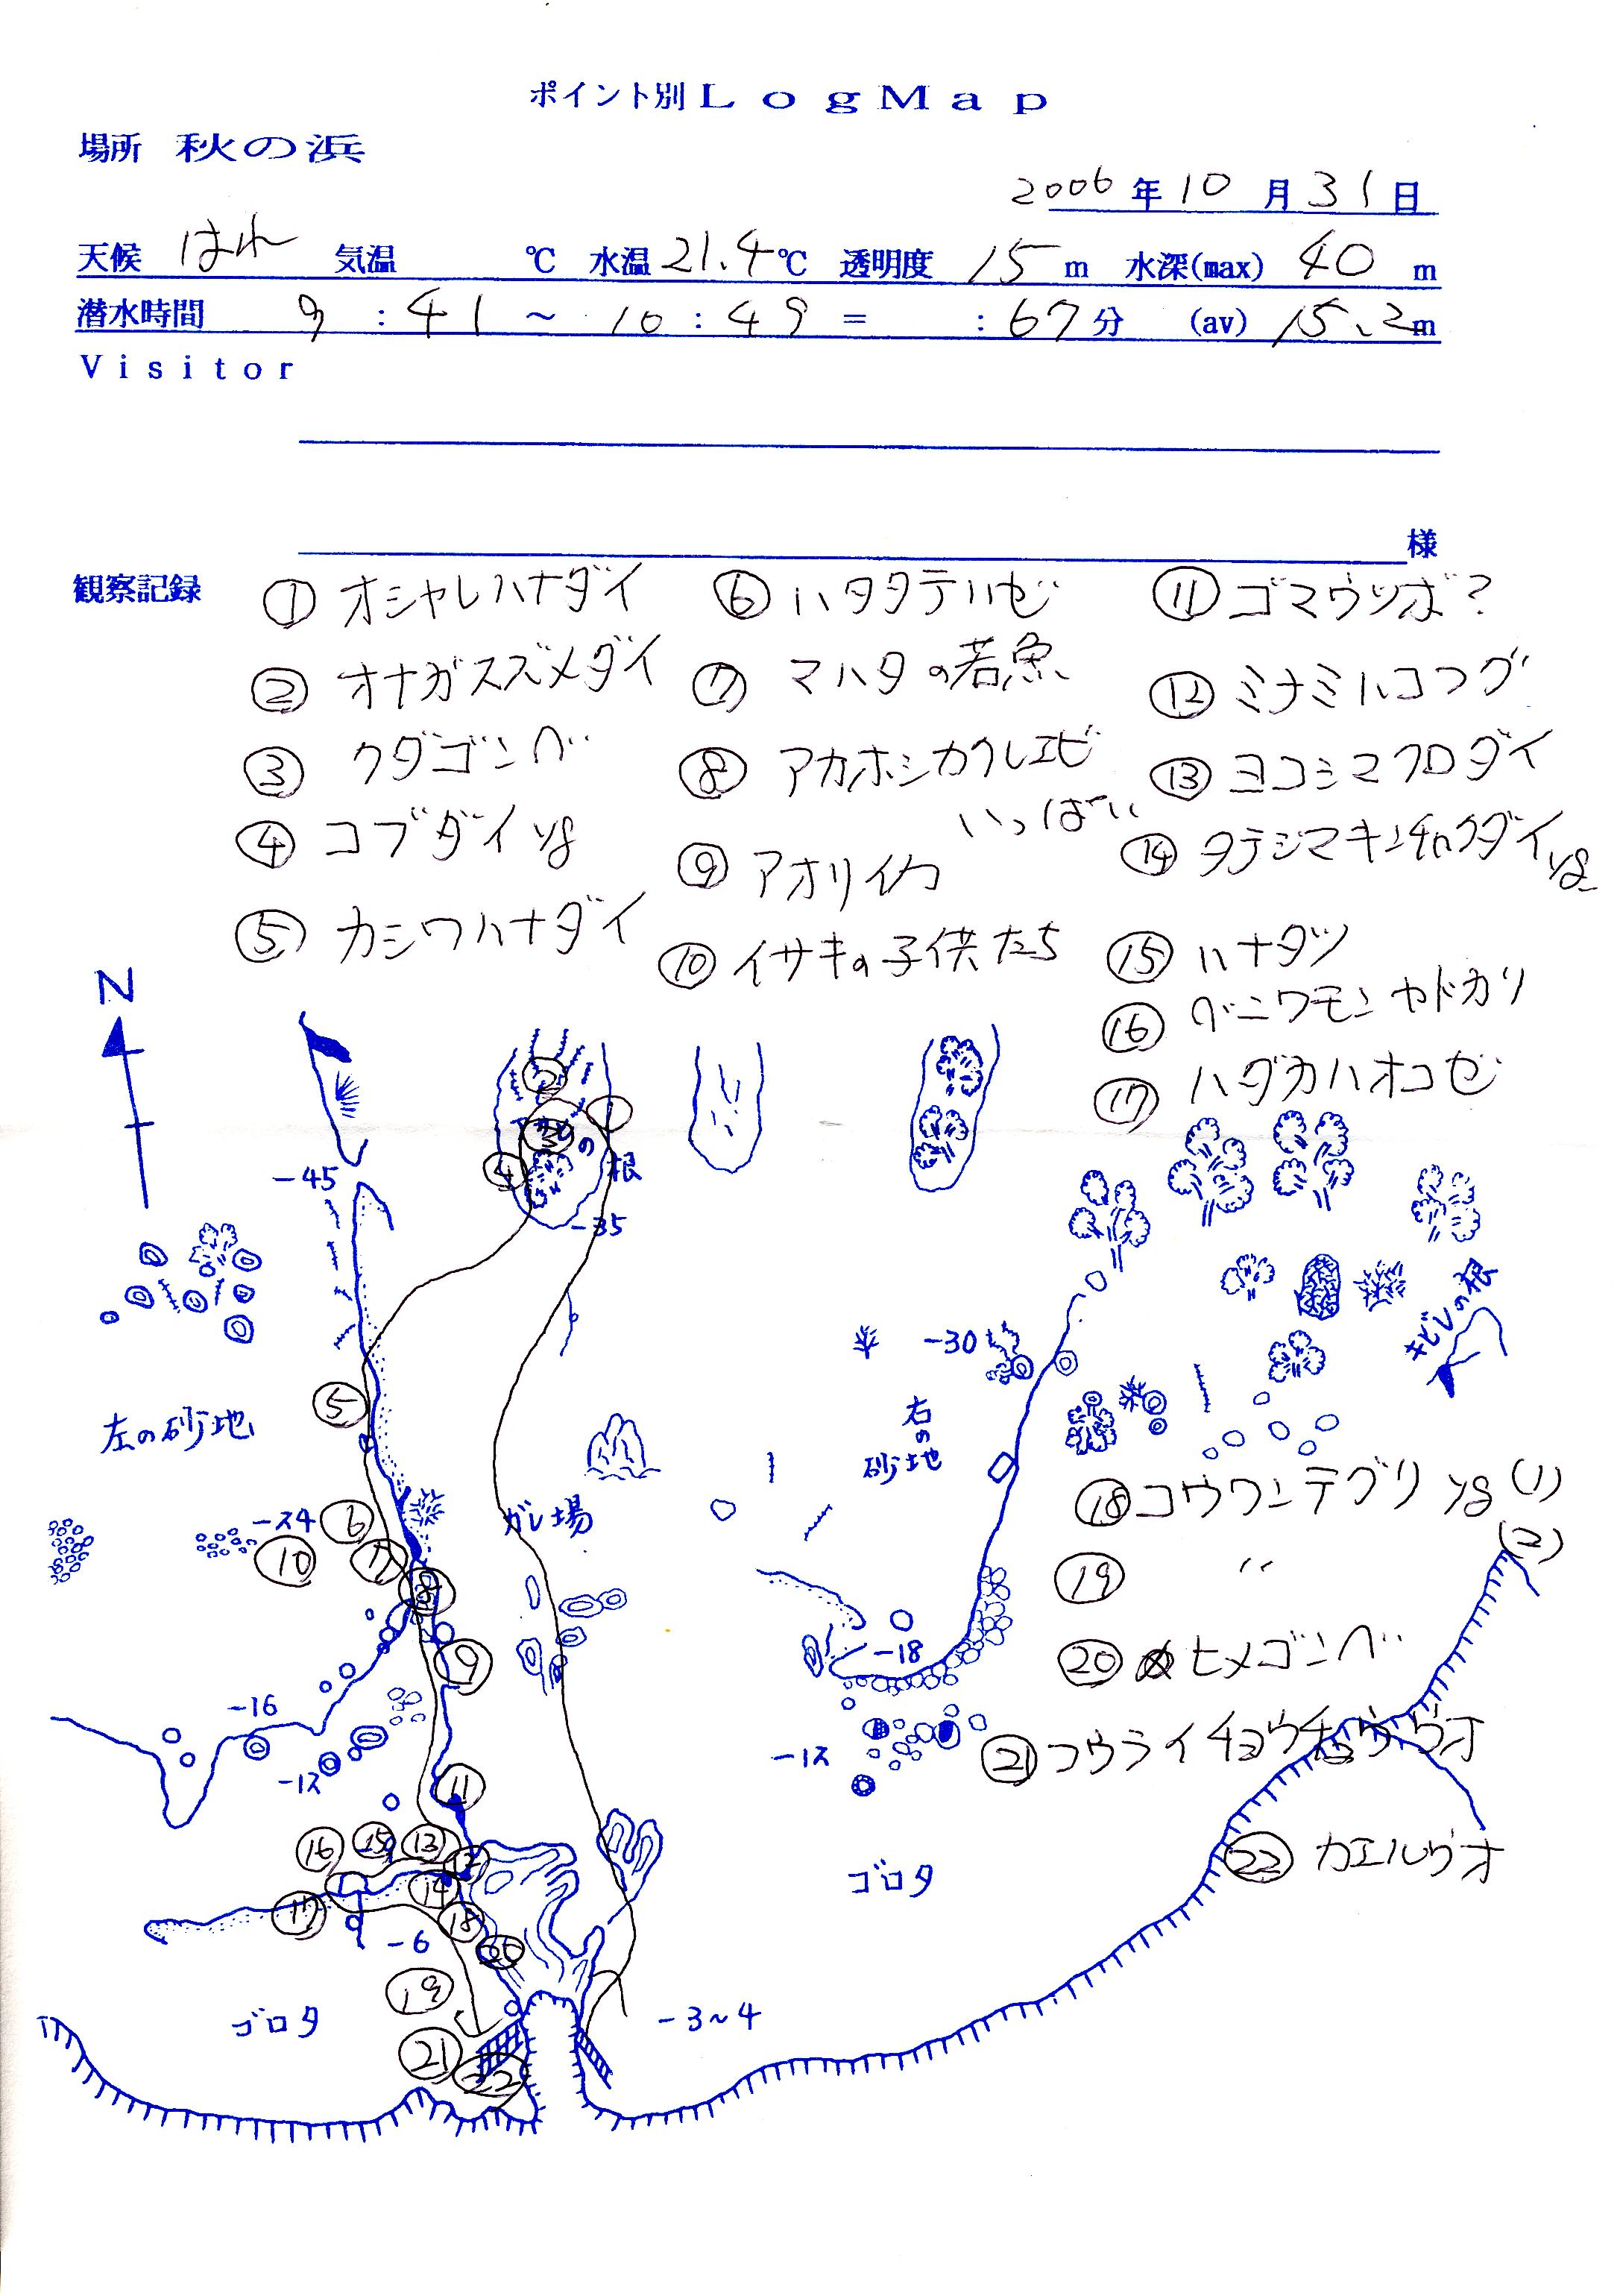 ポイント別 LogMap
場所 秋の浜
2006年10月31日
天候 はれ 気温 ℃ 水温 21.4℃ 透明度 15m 水深(max) 40m
潜水時間 9:41 ~ 10:49 = :67分 (av) 15.2m
Visitor
様
観察記録
① オシャレハナダイ
② オナガスズメダイ
③ クダゴンベ
④ コブダイ yg
⑤ カシワハナダイ
⑥ ハタタテハゼ
⑦ マハタの若魚
⑧ アカホシカクレエビ
いっぱい
⑨ アオリイカ
⑩ イサキの子供たち
⑪ ゴマウツボ?
⑫ ミナミハコフグ
⑬ ヨコシマクロダイ
⑭ タテジマキンチャクダイ yg
⑮ ハナダツ
⑯ ベニワモンヤドカリ
⑰ ハダカハオコゼ
⑱ コウワンテグリ yg (1)
⑲ 〃 (2)
⑳ ヒメゴンベ
㉑ コウライチョウチョウウオ
㉒ カエルウオ
N
②
①
③
の根
④
-45
-35
-30
キビレの根
⑤
左の砂地
右の砂地
-24
⑥
⑩
⑦
ガレ場
⑧
⑨
-18
-16
-12
-12
⑪
⑯
⑮
⑬
⑫
⑭
⑰
⑱
-6
⑳
⑲
ゴロタ
ゴロタ
-3~4
㉑
㉒